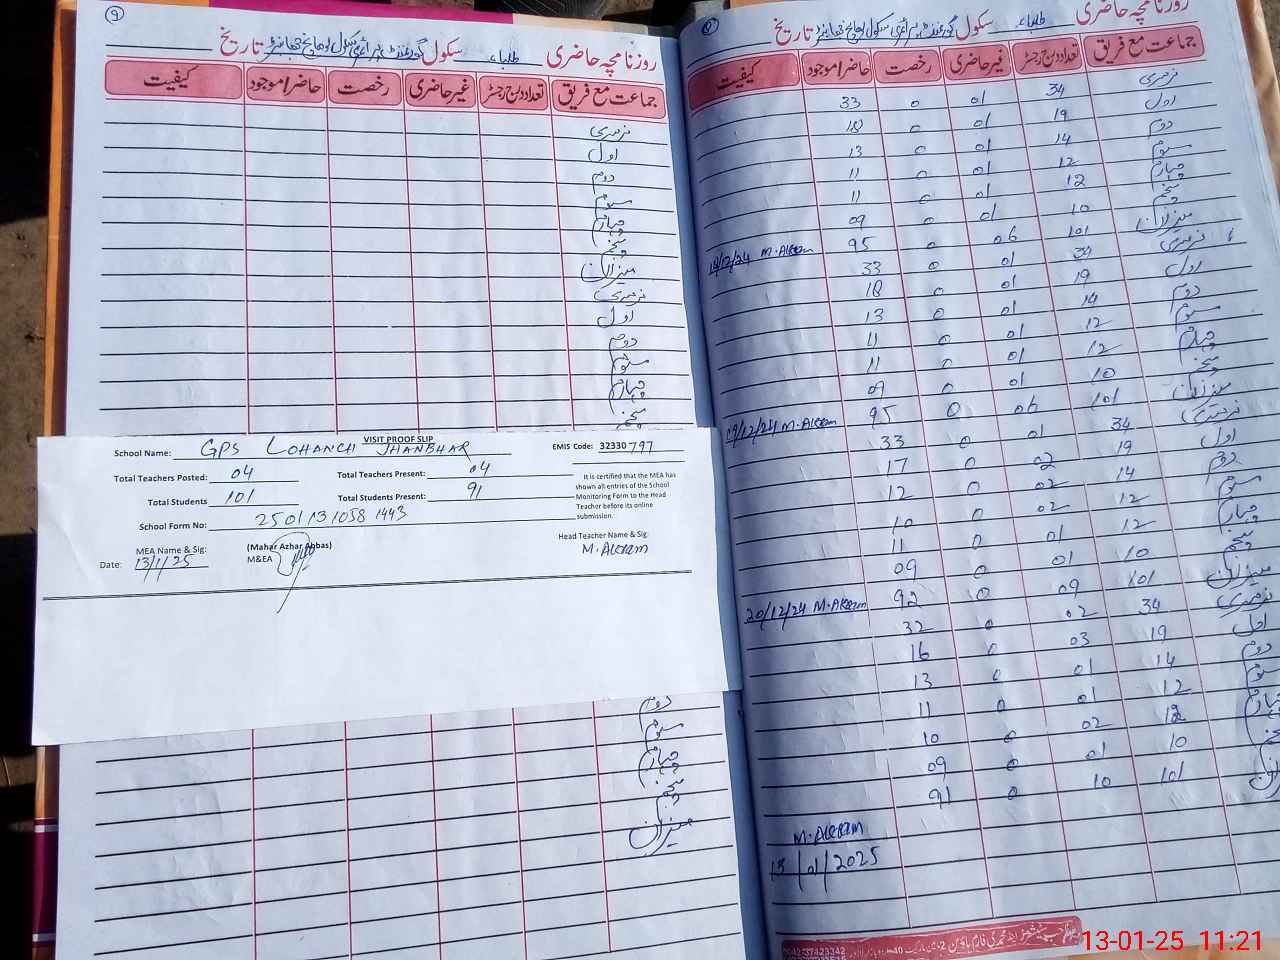 ۹
روزنامچہ حاضری طلباء سکول گورنمنٹ پرائمری سکول لوھانچ جھانبھر تاریخ
جماعت مع فریق تعداد درج رجسٹر غیر حاضری رخصت حاضر/موجود کیفیت
نرسری
اول
دوم
سوم
چہارم
پنجم
میزان
نرسری
اول
دوم
سوم
چہارم
پنجم
VISIT PROOF SLIP
School Name: GPS LOHANCH JHANBHAR EMIS Code: 32330797
Total Teachers Posted: 04 Total Teachers Present: 04
Total Students 101 Total Students Present: 91
School Form No: 250113/1038 1443
It is certified that the MEA has
shown all entries of the School
Monitoring Form to the Head
Teacher before its online
submission.
MEA Name & Sig: (Mahar Azhar Abbas)
M&EA
Date: 13/1/25
Head Teacher Name & Sig:
M.Akram
دوم
سوم
چہارم
پنجم
میزان
روزنامچہ حاضری طلباء سکول گورنمنٹ پرائمری سکول لوھانچ جھانبھر تاریخ
جماعت مع فریق تعداد درج رجسٹر غیر حاضری رخصت حاضر/موجود کیفیت
نرسری 34 01 0 33
اول 19 01 0 18
دوم 14 01 0 13
سوم 12 01 0 11
چہارم 12 01 0 11
پنجم 10 01 0 09
میزان 101 06 0 95 18/12/24 M.Akram
نرسری 34 01 0 33
اول 19 01 0 18
دوم 14 01 0 13
سوم 12 01 0 11
چہارم 12 01 0 11
پنجم 10 01 0 09
میزان 101 06 0 95 19/12/24 M.Akram
نرسری 34 01 0 33
اول 19 02 0 17
دوم 14 02 0 12
سوم 12 02 0 10
چہارم 12 01 0 11
پنجم 10 01 0 09
میزان 101 09 0 92 20/12/24 M.Akram
نرسری 34 02 0 32
اول 19 03 0 16
دوم 14 01 0 13
سوم 12 01 0 11
چہارم 12 02 0 10
پنجم 10 01 0 09
میزان 101 10 0 91
M.Akram
13/01/2025
13-01-25 11:21